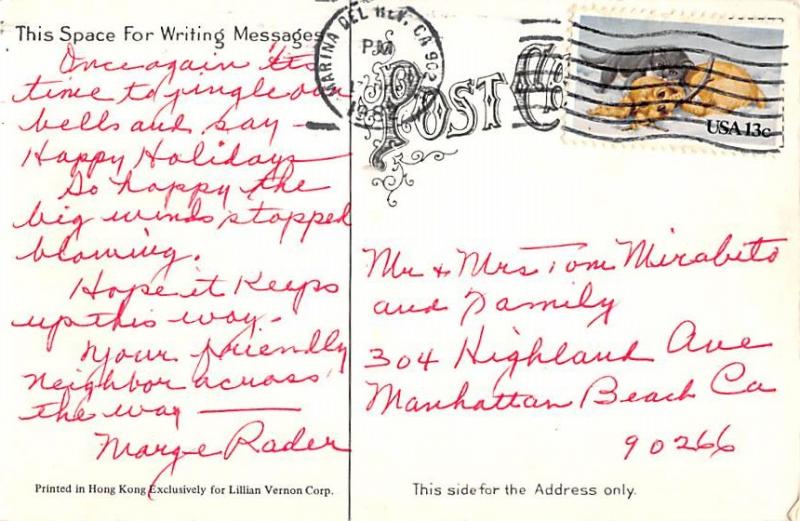 This Space For Writing Messages
Once again 'tis
time to jingle our
bells and say -
Happy Holidays
So happy the
big winds stopped
blowing.
Hope it keeps
up this way.
Your friendly
neighbor across
the way
Marge Rader
Printed in Hong Kong Exclusively for Lillian Vernon Corp.
MARINA DEL REY, CA 902
PM
POST
USA 13c
Mr + Mrs Tom Mirabito
and Family
304 Highland Ave
Manhattan Beach Ca
90266
This side for the Address only.